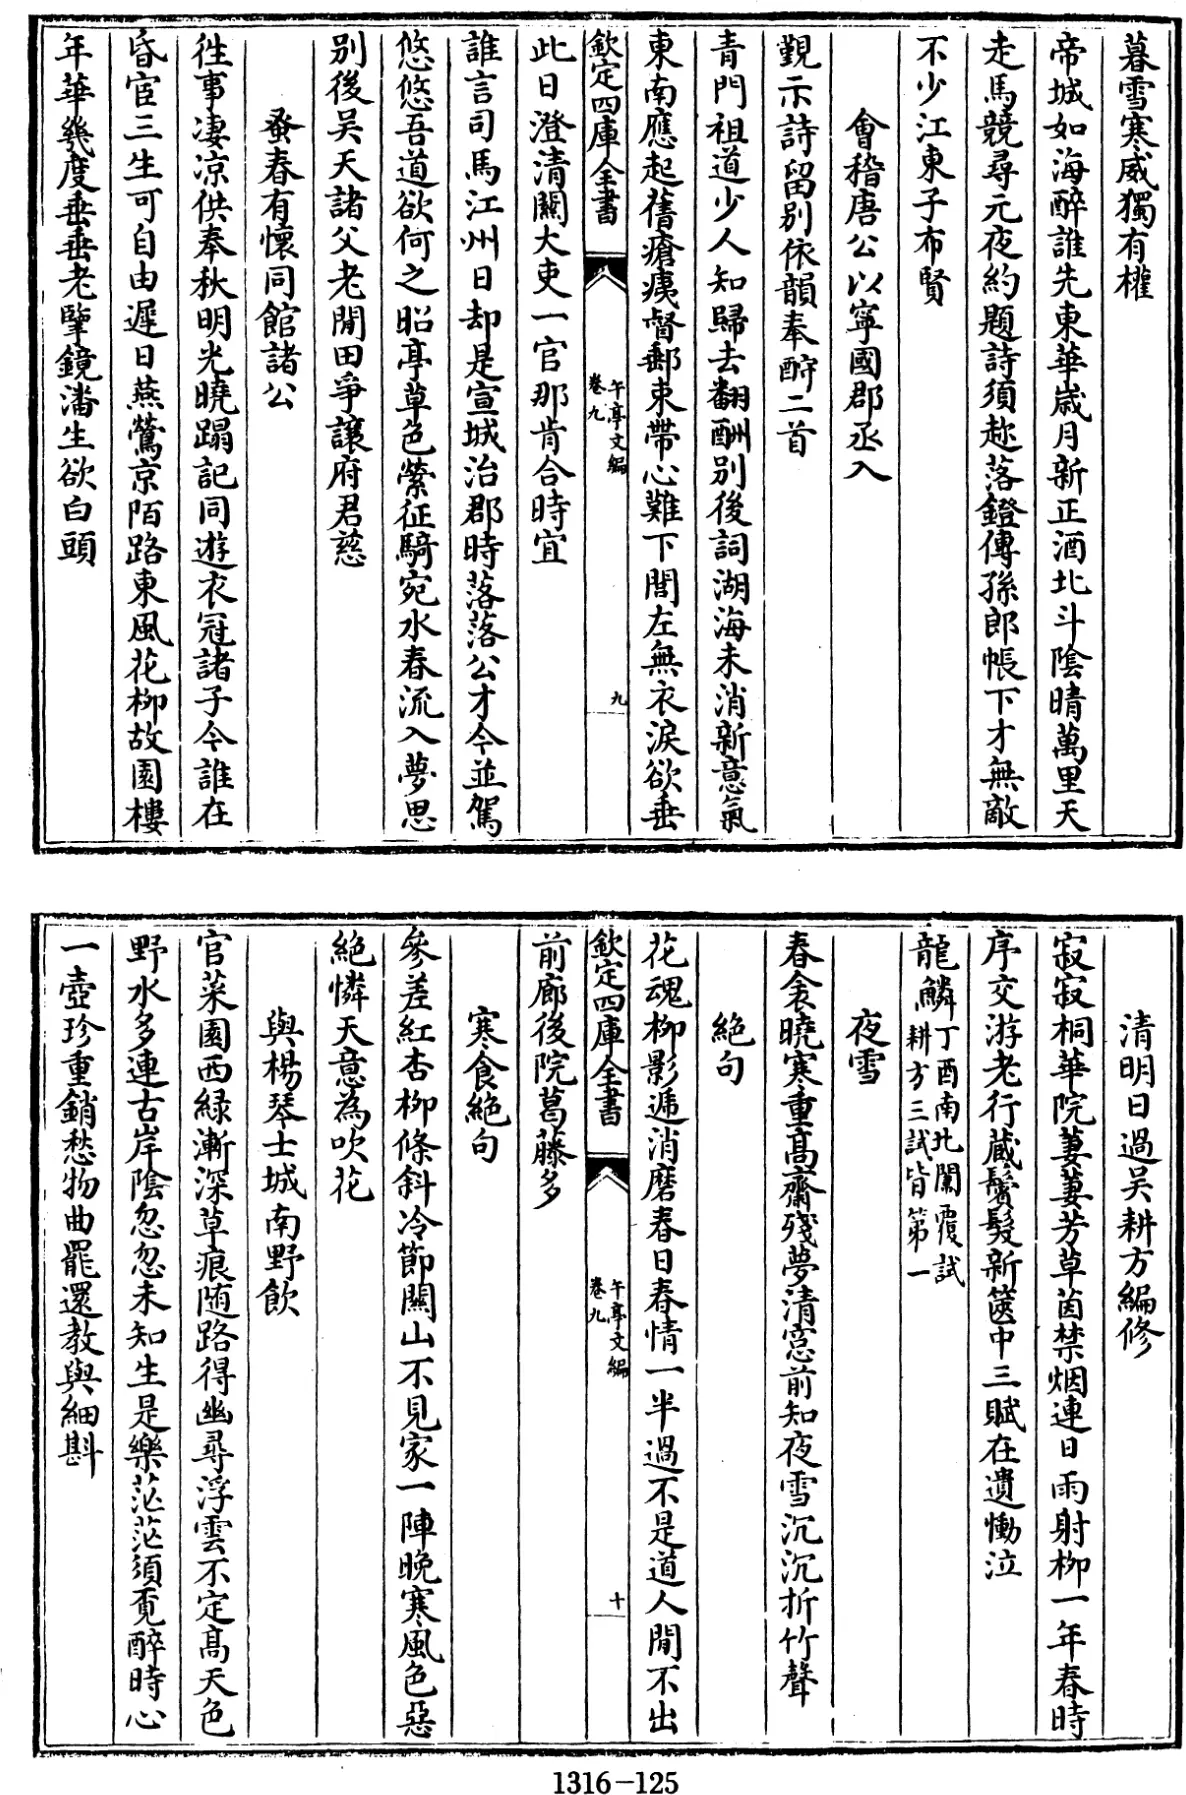 暮雪寒威獨有權
帝城如海醉誰先東華歲月新正酒北斗陰晴萬里天
走馬競尋元夜約題詩須趁落鐙傳孫郎帳下才無敵
不少江東子布賢
會稽唐公以寧國郡丞入
覲示詩留别依韻奉酧二首
青門祖道少人知歸去翻酬别後詞湖海未消新意氣
東南應起舊瘡痍督郵束帶心難下閭左無衣淚欲垂
欽定四庫全書
午亭文編
卷九
九
此日澄清關大吏一官那肯合時宜
誰言司馬江州日却是宣城治郡時落落公才今並駕
悠悠吾道欲何之昭亭草色縈征騎宛水春流入夢思
别後吴天諸父老閒田爭讓府君慈
蚤春有懷同館諸公
徃事凄凉供奉秋明光曉蹋記同遊衣冠諸子今誰在
昏宦三生可自由遲日燕鶯京陌路東風花栁故園樓
年華幾度垂垂老擥鏡潘生欲白頭
清明日過吴耕方編修
寂寂桐華院萋萋芳草茵禁烟連日雨射栁一年春時
序交游老行蔵鬢髮新篋中三賦在遺慟泣
龍鱗丁酉南北闈覆試
耕方三試皆第一
夜雪
春衾曉寒重高齋殘夢清窻前知夜雪沉沉折竹聲
絶句
花魂栁影遞消磨春日春情一半過不是道人閒不出
欽定四庫全書
午亭文編
卷九
十
前廊後院葛藤多
寒食絶句
參差紅杏栁條斜冷節關山不見家一陣晚寒風色惡
絶憐天意為吹花
與楊琴士城南野飲
官菜園西緑漸深草痕随路得幽尋浮雲不定高天色
野水多連古岸陰忽忽未知生是樂茫茫須覔醉時心
一壺珍重銷愁物曲罷還教與細斟
1316-125